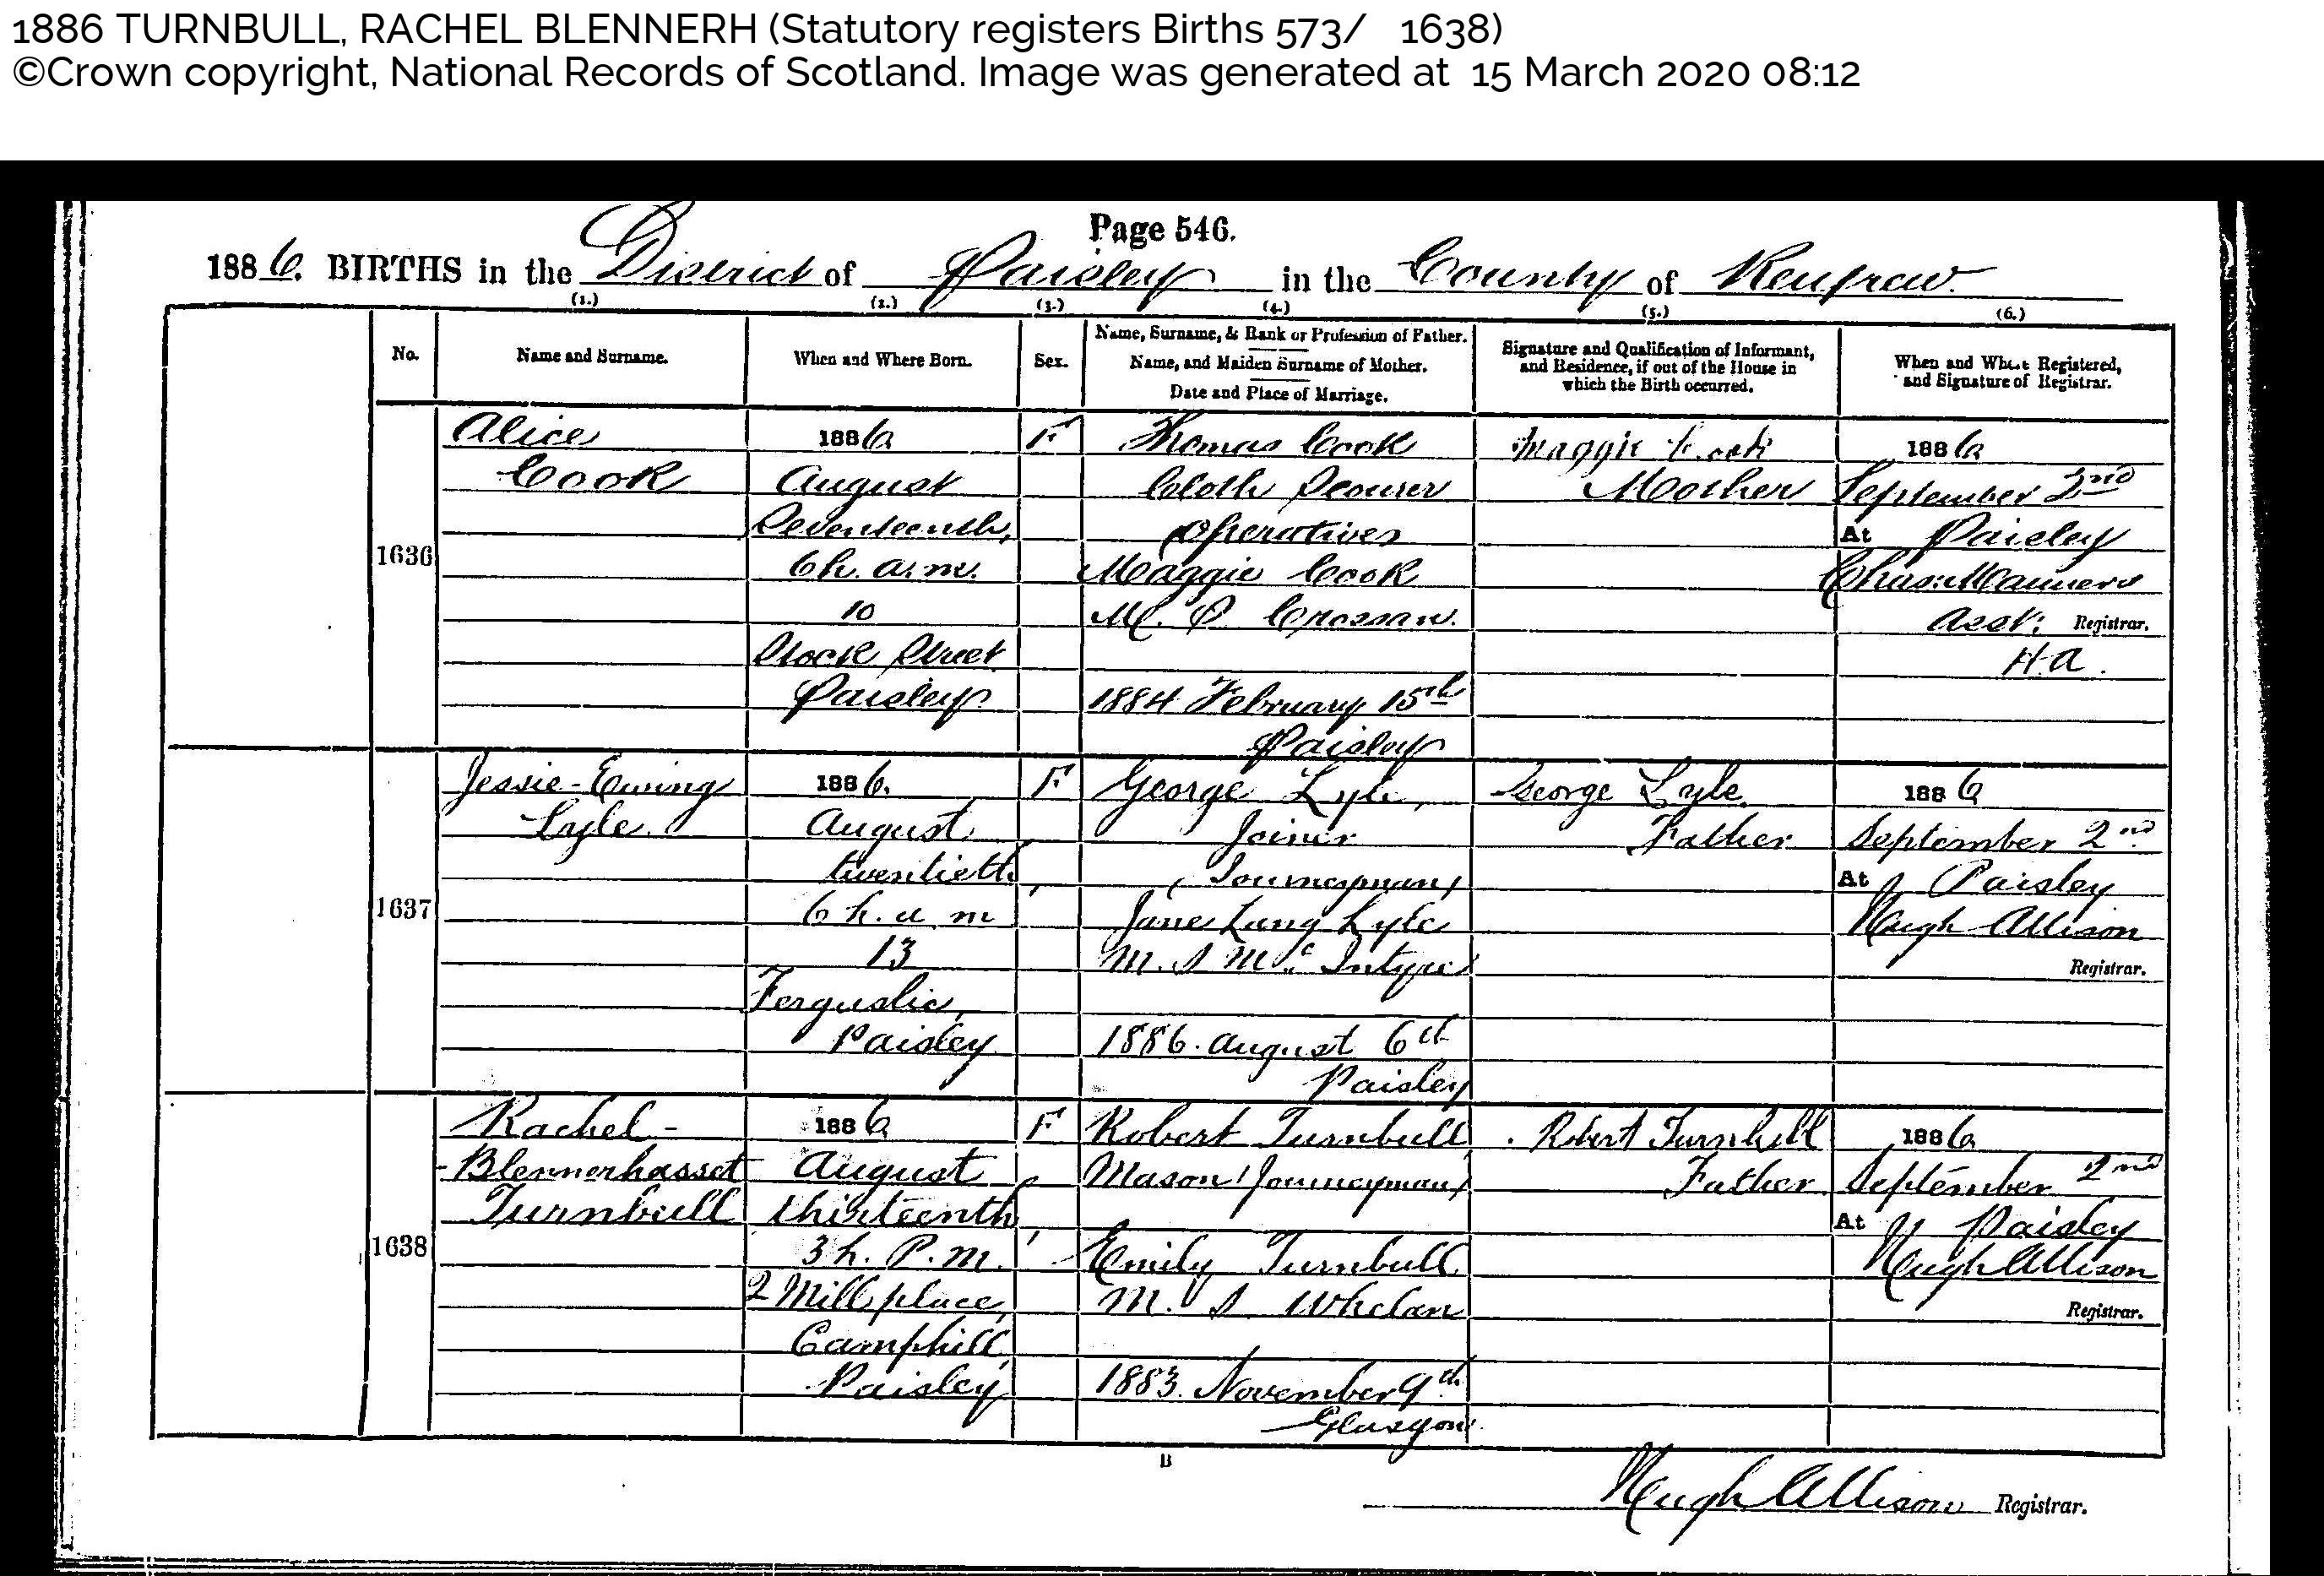 1886 TURNBULL, RACHEL BLENNERH (Statutory registers Births 573/ 1638)
©Crown copyright, National Records of Scotland. Image was generated at 15 March 2020 08:12
Page 546.
1886. BIRTHS in the District of Paisley in the County of Renfrew
(1.) (2.) (3.) (4.) (5.) (6.)
No.
Name and Surname.
When and Where Born.
Sex.
Name, Surname, & Rank or Profession of Father.
Name, and Maiden Surname of Mother.
Date and Place of Marriage.
Signature and Qualification of Informant,
and Residence, if out of the House in
which the Birth occurred.
When and Where Registered,
and Signature of Registrar.
1636
Alice
Cook
1886
August
Seventeenth,
6 h. a.m.
10
Stock Street
Paisley
F
Thomas Cook
Cloth Scourer
Operative
Maggie Cook
M. S. Crossan.
1884 February 15th
Paisley
Maggie Cook
Mother
1886
September 2nd
At Paisley
Chas: Manners
Asst: Registrar.
H.A.
1637
Jessie-Ewing
Lyle
1886.
August
twentieth,
6 h. a m
13
Ferguslie,
Paisley
F
George Lyle,
Joiner
(Journeyman)
Jane Lang Lyle
M. S McIntyre
1886. August 6th
Paisley
George Lyle
Father
1886
September 2nd
At Paisley
Hugh Allison
Registrar.
1638
Rachel-
-Blennerhasset
Turnbull
1886
August
thirteenth,
3 h. P.m.
2 Mill place,
Camphill,
Paisley
F
Robert Turnbull
Mason (Journeyman)
Emily Turnbull
M. S Whelan
1883. November 9th
Glasgow
Robert Turnbull
Father
1886
September 2nd
At Paisley
Hugh Allison
Registrar.
B
Hugh Allison Registrar.